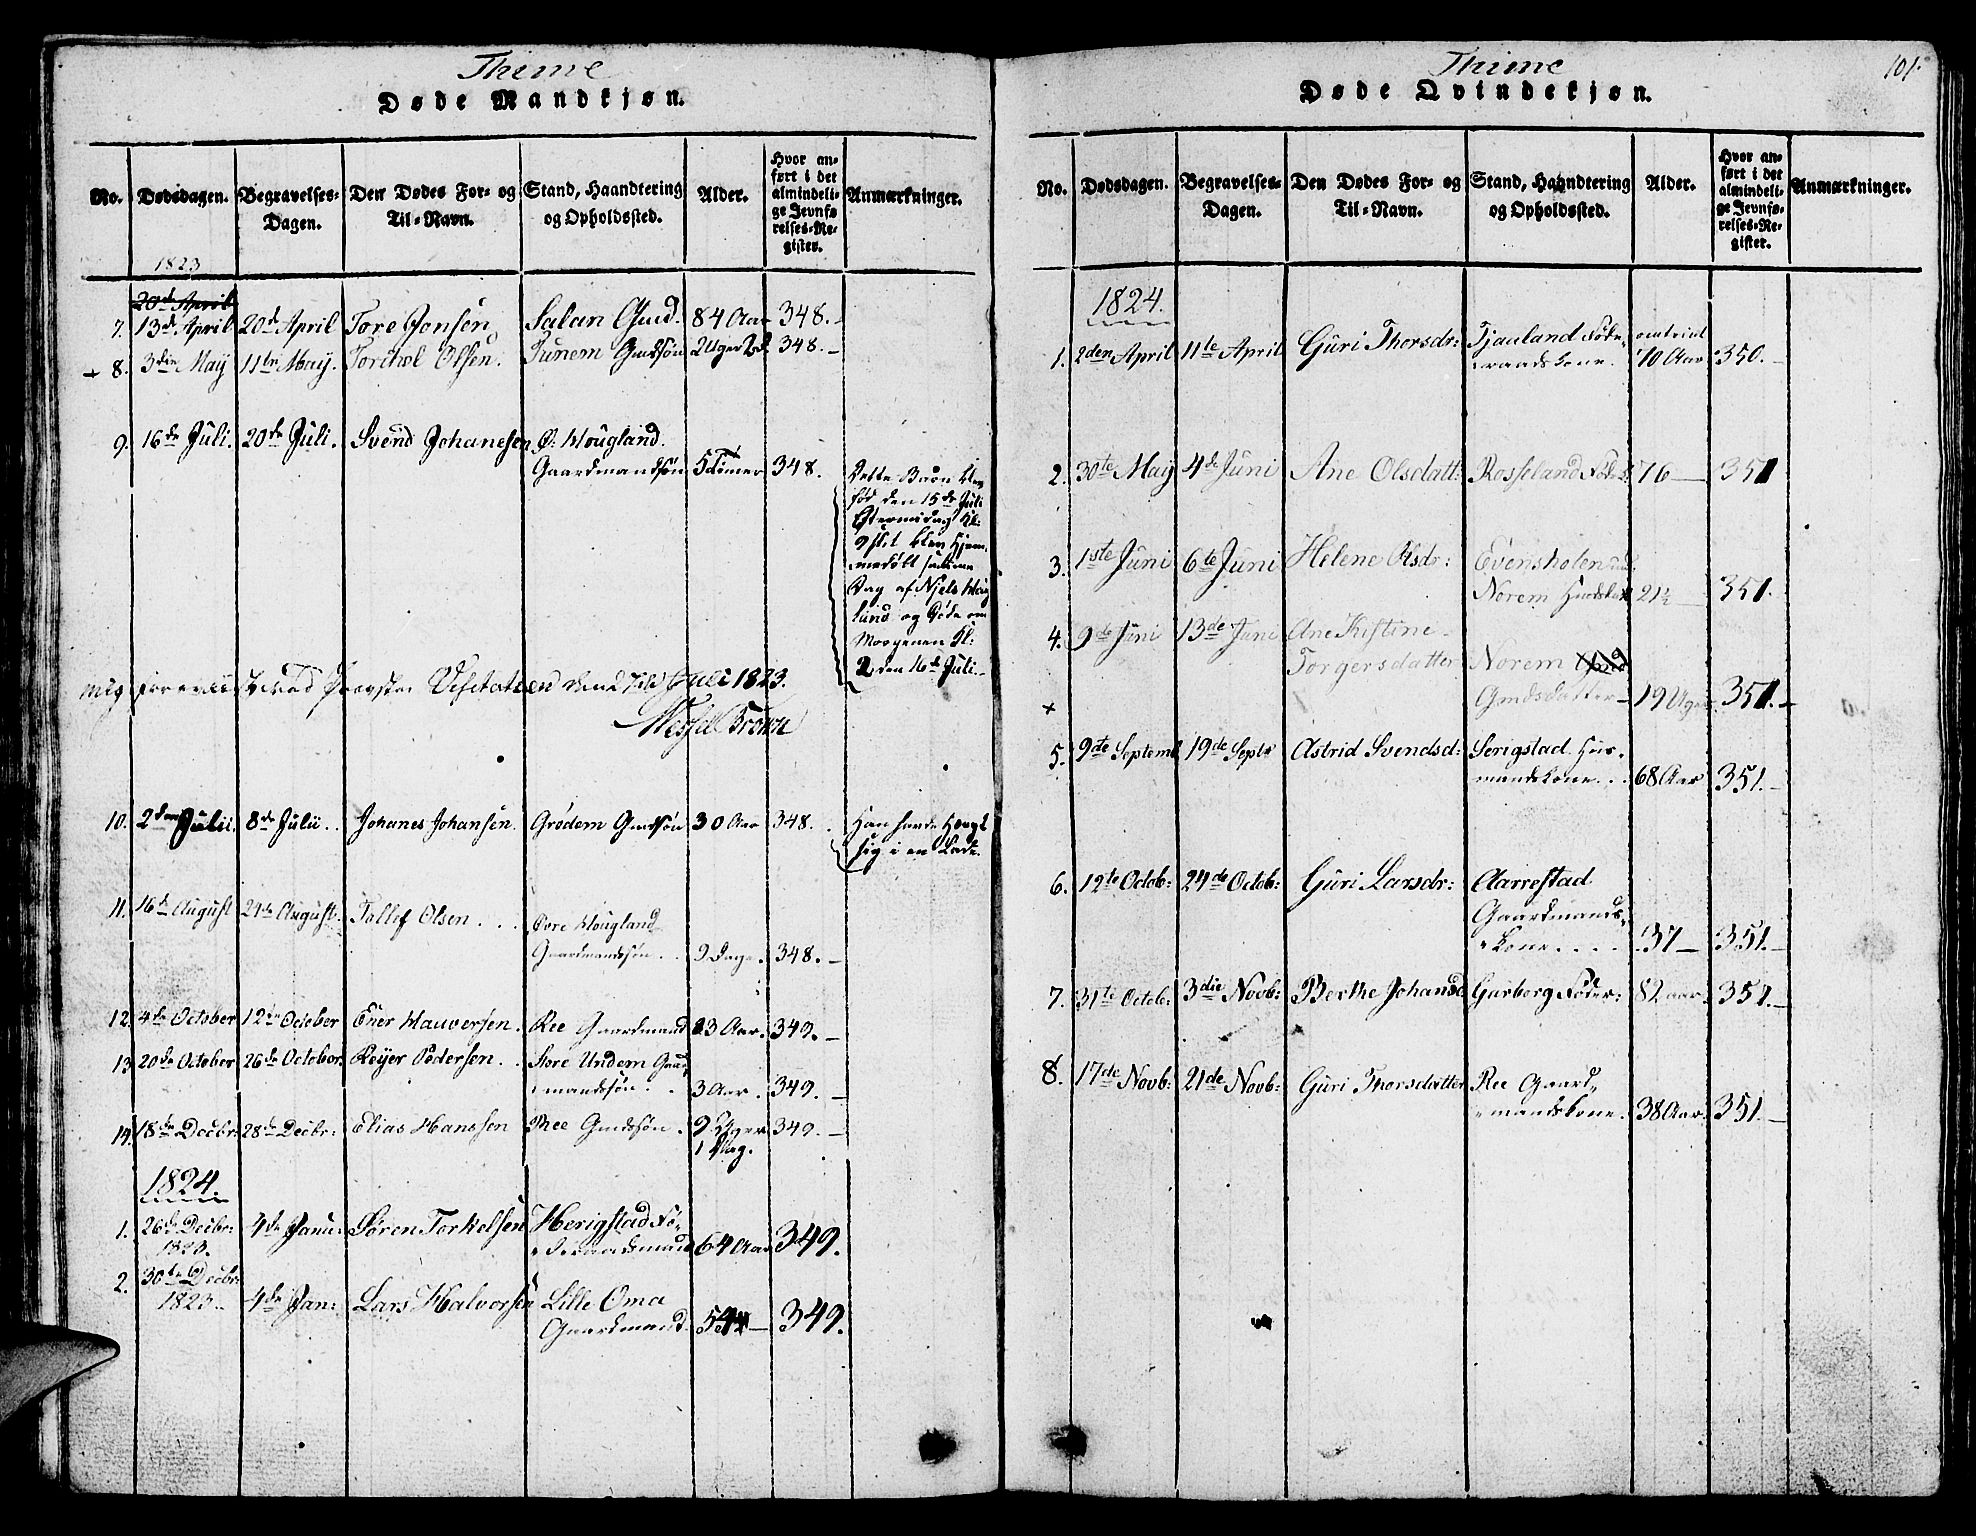 Thime
Døde Mandkjøn.
No. Dødsdagen. Begravelses-Dagen. Den Dødes For- og Til-Navn. Stand, Haandtering og Opholdssted. Alder. Hvor anført i det almindelige Jevnførelses-Register. Anmærkninger.
1823
20de April
7. 13de April 20de April Tore Jonsen Salan Gmd. 84 Aar 348.
+ 8. 3die May 11te May. Torckel Olsen. Tunem Gmdsøn 2 Uger 348.
9. 16de Juli. 20de Juli. Svend Johanesen Ø: Hougland
Gaardmandsøn 5 Timer 348.
Dette Barn blev
fød den 15de Juli
Eftermidag Kl:
9 slet blev hjem-
medøbt samme
Dag af Njels Houg
land og Døde om
Morgenen Kl:
2 den 16de Juli.
Mig foreviist ved Provste Visitatsen den 27de Juli 1823.
Wessel Brown
10. 2den Julii. 8de Julii. Johanes Johansen. Grødem Gmdsøn 30 Aar 348. Han havde Hengt
sig i en Lade.
11. 16de August 24de August. Tollef Olsen. Øvre Hougland
Gaardmandssøn. 9 Dage. 348.
12. 4de October 12te October Ener Hauversen. Ree Gaardmand 83 Aar. 349.
13 20de October 26de October. Reijer Pedersen. Store Undem Gaard
mandssøn. 3 Aar. 349.
14 18de Decbr: 28de Decbr: Elias Hanssen Ree Gmdssøn. 9 Uger 349.
1 Dag.
1824.
1. 26de Decbr: 4de Janu: Søren Torkelsen Herigstad Fø-
1823. deraadsmand 64 Aar 349.
2. 30te Decbr:
1823. 4de Jan: Lars Halvorsen Lille Oma
Gaardmand. 54 349.
Thime
101.
Døde Qvindekjøn.
No. Dødsdagen. Begravelses-Dagen. Den Dødes For- og Til-Navn. Stand, Haandtering og Opholdssted. Alder. Hvor anført i det almindelige Jevnførelses-Register. Anmærkninger.
1824.
1. 2den April 11te April Guri Thorsdr: Tjaaland Føde- omtrint
raadskone. 70 Aar 350.
2. 30te May 4de Juni Ane Olsdatt: Rosseland 76 351
3. 1ste Juni 6te Juni Helene Olsdr: Evensholen
Norem 21½ 351.
4. 9de Juni 13de Juni Ane Kistine
Torgersdatter Norem
+ Gmdsdatter 19 Uger 351.
5. 9de Septemb 19de Septr Astrid Svendsd: Serigstad. Huus-
mandskone. 68 Aar 351.
6. 12te Octob: 24de Octob: Guri Larsdr: Aarrestad
Gaardmands-
kone. 37 351.
7. 31te Octob: 3die Novb: Berthe Johansd Garborg Føder: 82 aar 351.
8. 17de Novb: 21de Novb: Guri Thorsdatter Ree Gaard
mandskone. 38 Aar 351.